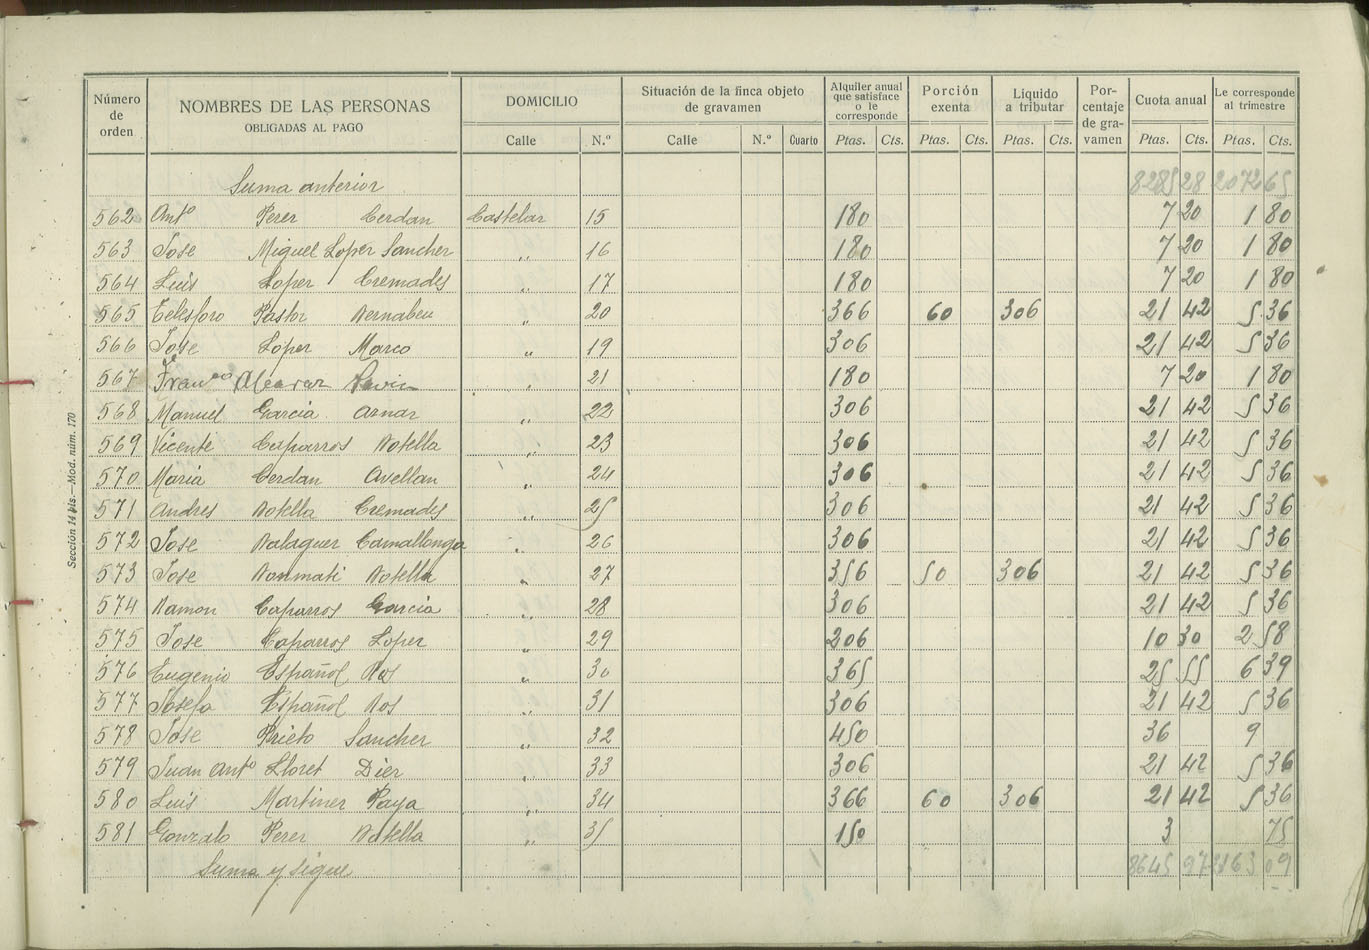 Número de orden | NOMBRES DE LAS PERSONAS OBLIGADAS AL PAGO | DOMICILIO | Situación de la finca objeto de gravamen | Alquiler anual que satisface o le corresponde | Porción exenta | Líquido a tributar | Por-centaje de gra-vamen | Cuota anual | Le corresponde al trimestre
Calle | N.º | Calle | N.º | Cuarto | Ptas. | Cts. | Ptas. | Cts. | Ptas. | Cts. | Ptas. | Cts. | Ptas. | Cts.
Suma anterior 8285 28 2072 65
562 Antº Perez Cerdan Castelar 15 180 7 20 1 80
563 Jose Miguel Lopez Sanchez " 16 180 7 20 1 80
564 Luis Lopez Cremades " 17 180 7 20 1 80
565 Telesforo Pastor Bernabeu " 20 366 60 306 21 42 5 36
566 Jose Lopez Marco " 19 306 21 42 5 36
567 Franco Alcaraz " 21 180 7 20 1 80
568 Manuel Garcia Aznar " 22 306 21 42 5 36
569 Vicente Caparros Botella " 23 306 21 42 5 36
570 Maria Cerdan Avellan " 24 306 21 42 5 36
571 Andres Botella Cremades " 25 306 21 42 5 36
572 Jose Balaguer Camallonga " 26 306 21 42 5 36
573 Jose Bonmati Botella " 27 356 50 306 21 42 5 36
574 Ramon Caparros Garcia " 28 306 21 42 5 36
575 Jose Caparros Lopez " 29 206 10 30 2 58
576 Eugenio Español Ros " 30 365 25 55 6 39
577 Josefa Español Ros " 31 306 21 42 5 36
578 Jose Prieto Sanchez " 32 450 36 9
579 Juan Antº Lloret Diez " 33 306 21 42 5 36
580 Luis Martinez Paya " 34 366 60 306 21 42 5 36
581 Gonzalo Perez Botella " 35 150 3 75
Suma y sigue 8645 97 2163 09
Sección 14 bis.—Mod. núm. 170